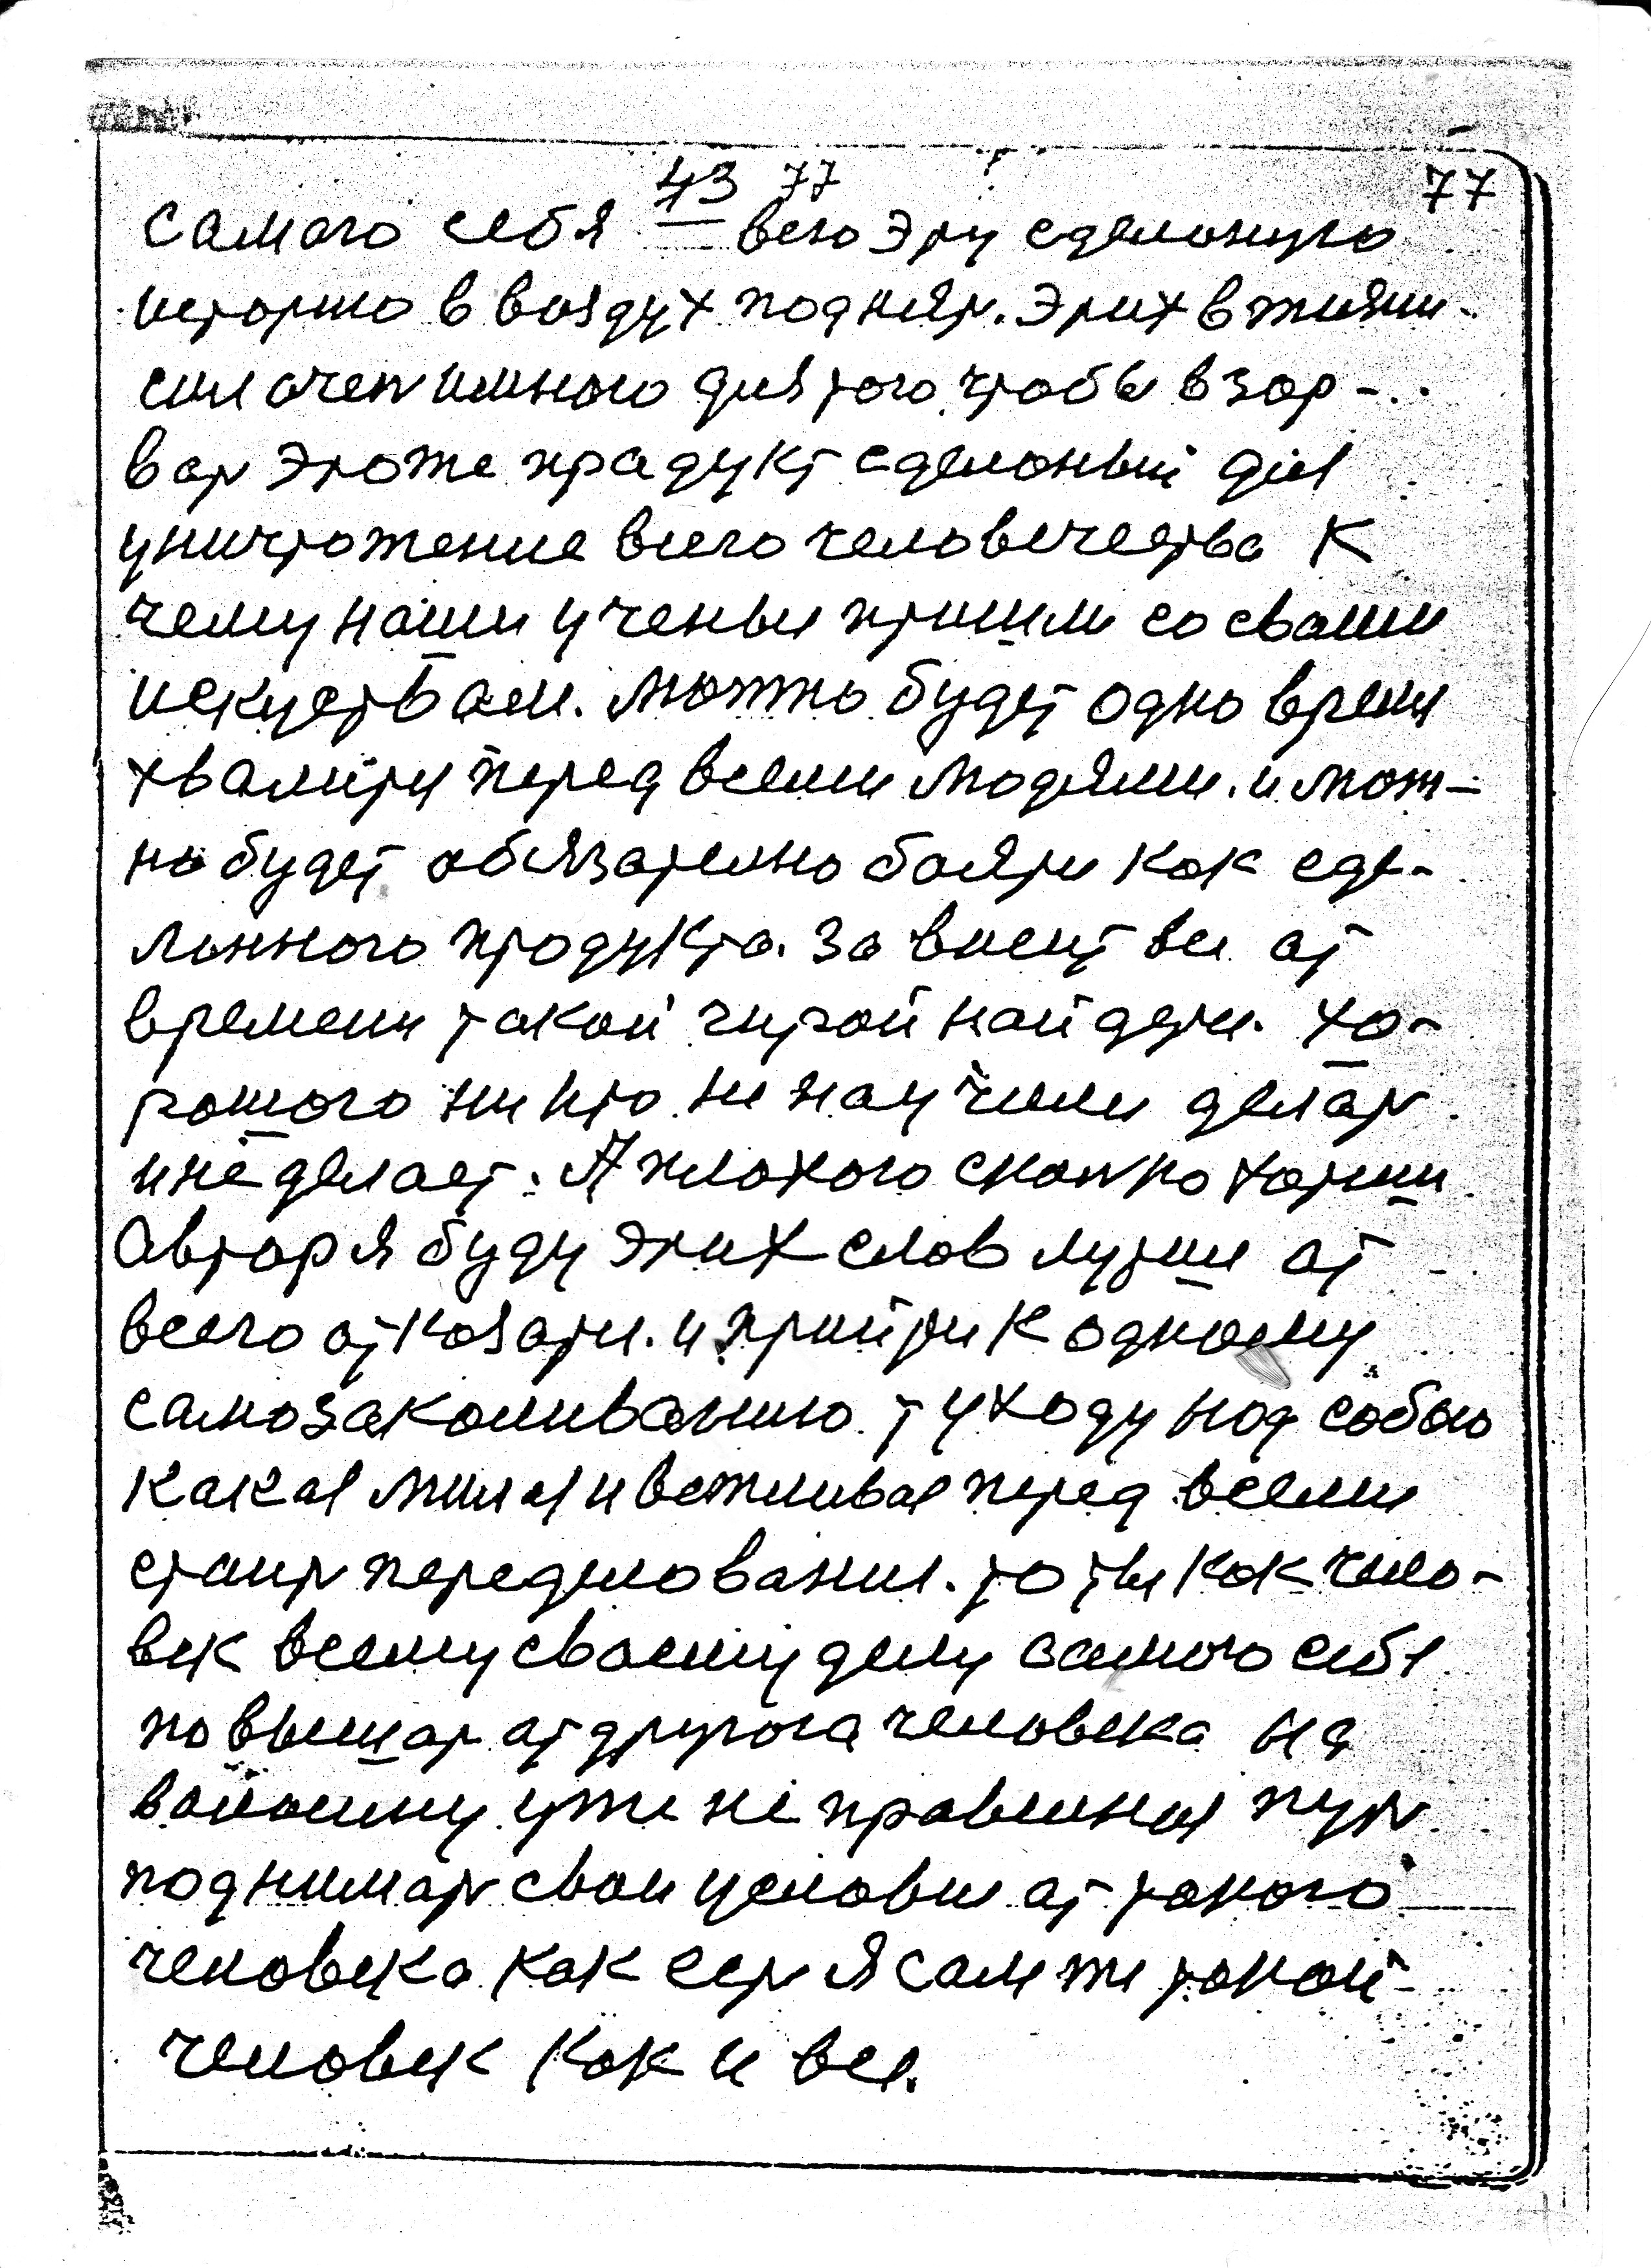 43 77 77
самого себя всю эту сделоную
историю в воздух поднять. Этих в жизни
сил очень много для того, чтобы взор-
вать этоже прадукт сделоный для
уничтожение всего человечества К
чему наши ученые пришли со сваими
искуствами. Можно будет одно время
хвалити перед всеми людями. и мож-
но будет обязателно бояти как сде-
лонного продукта. Зависит все от
времени такой чирой найдети. Хо-
рошого никто не научили делать
и не делает. А плохого сколько хотиш
Автор я буду этих слов лутши от
всего отказати. и прийти к одному
самозакаливанию. ту ходу под собою
какая милая и вежливая перед всеми
стоить передмования. То ты как чило-
век всему своему делу самого себя
повышать от другога человека на
войошну уже не правилная путь
поднимать свои условия от такого
человека. как есть я сам же такой
человек как и все.